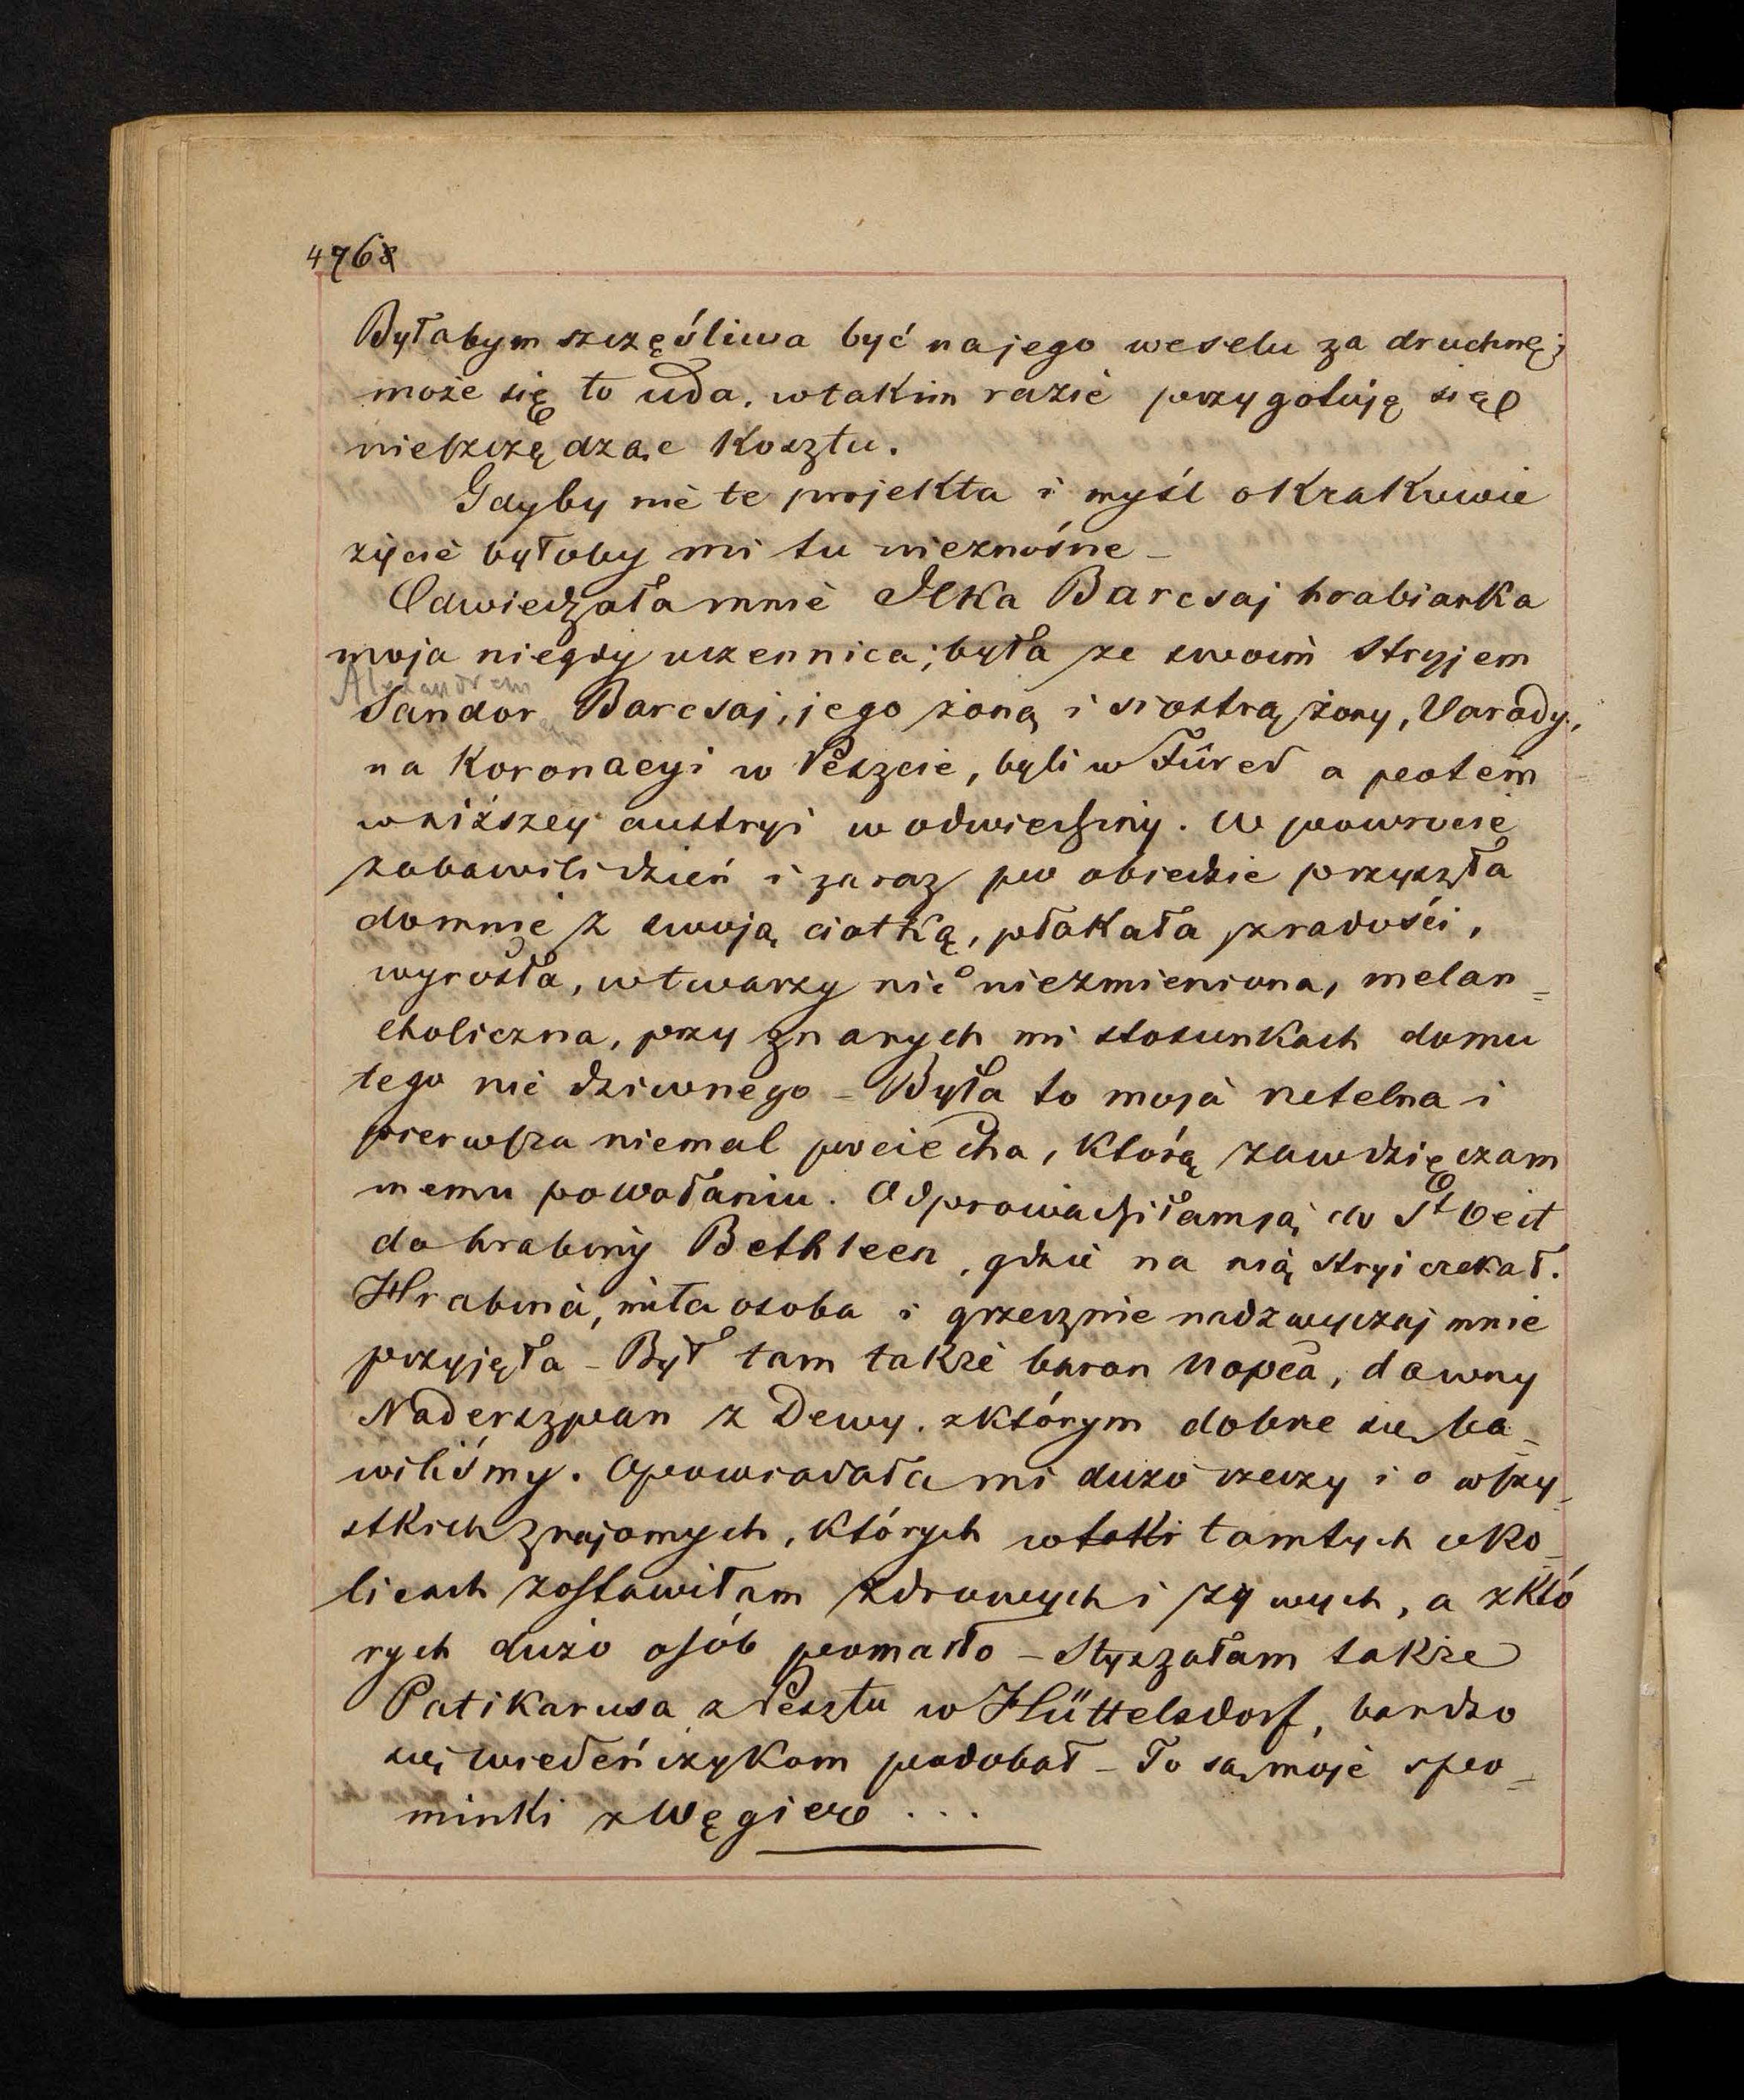 4768
Byłabym szczęśliwa być na jego weselu za druchnę;
może się to uda. w takim razie przygotuję się
nieszczędząc kosztu.
Gdyby nie te projekta i myśl o Krakowie
życie byłoby mi tu nieznośne –
Odwiedzała mnie Ilka Barcsaj hrabianka
moja niegdy uczennica; była ze swoim stryjem
Alexandrem
Sandor Barcsaj, jego żoną i siostrą żony, Varady,
na Koronacyi w Peszcie, byli w Fûred a potem
w niższey austryi w odwiedziny. W powrocie
zabawili dzień i zaraz po obiedzie przyszła
do mnie z swoją ciotką, płakała z radości,
wyrosła, w twarzy nic niezmieniona, melan=
choliczna, przy znanych mi stosunkach domu
tego nic dziwnego – Była to moja rzetelna i
pierwsza niemal pociecha, którą zawdzięczam
memu powołaniu. Odprowadziłam ją do St Veit
do hrabiny Bethleen, gdzie na nią stryj czekał.
Hrabina, miła osoba i grzecznie nadzwyczaj mnie
przyjęła – Był tam także baron Nopča, dawny
Naderszpan z Dewy. z którym dobrze się ba=
wiliśmy. Opowiadała mi dużo rzeczy i o wszy=
stkich znajomych, których w taki tamtych oko=
licach zostawiłam zdrowych i żywych, a z któ
rych dużo osób pomarło – Słyszałam także
Patikarusa z Pesztu w Hüttelsdorf, bardzo
się wiedeńczykom podobał – To są moje spo=
minki z Węgier ...